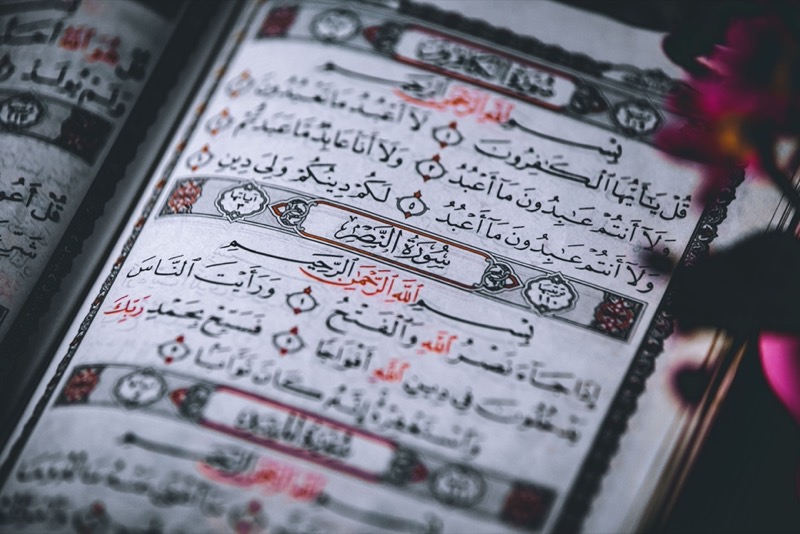 سُورَةُ الْكَافِرُونَ
بِسْمِ ٱللَّهِ ٱلرَّحْمَٰنِ ٱلرَّحِيمِ
قُلْ يَٰٓأَيُّهَا ٱلْكَٰفِرُونَ ١ لَآ أَعْبُدُ مَا تَعْبُدُونَ ٢
وَلَآ أَنتُمْ عَٰبِدُونَ مَآ أَعْبُدُ ٣ وَلَآ أَنَا۠ عَابِدٌ مَّا عَبَدتُّمْ ٤
وَلَآ أَنتُمْ عَٰبِدُونَ مَآ أَعْبُدُ ٥ لَكُمْ دِينُكُمْ وَلِىَ دِينِ ٦
سُورَةُ النَّصْرِ
بِسْمِ ٱللَّهِ ٱلرَّحْمَٰنِ ٱلرَّحِيمِ
إِذَا جَآءَ نَصْرُ ٱللَّهِ وَٱلْفَتْحُ ١ وَرَأَيْتَ ٱلنَّاسَ
يَدْخُلُونَ فِى دِينِ ٱللَّهِ أَفْوَاجًا ٢ فَسَبِّحْ بِحَمْدِ رَبِّكَ
وَٱسْتَغْفِرْهُ إِنَّهُۥ كَانَ تَوَّابًۢا ٣
سُورَةُ الْمَسَدِ
بِسْمِ ٱللَّهِ ٱلرَّحْمَٰنِ ٱلرَّحِيمِ
قُلْ هُوَ ٱللَّهُ
وَلَمْ يُولَدْ
قُلْ أَعُوذُ